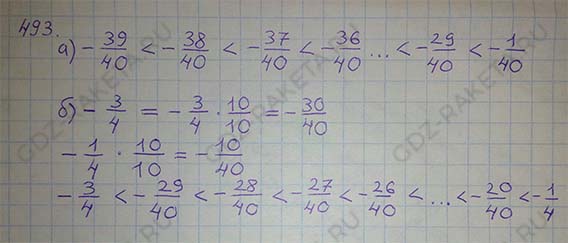 493.
а) -39/40 < -38/40 < -37/40 < -36/40 ... < -29/40 < -1/40
б) -3/4 = -3/4 · 10/10 = -30/40
-1/4 · 10/10 = -10/40
-3/4 < -29/40 < -28/40 < -27/40 < -26/40 < ... < -20/40 < -1/4
GDZ-RAKETA.RU